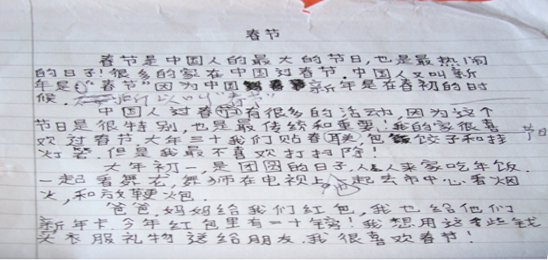 春节
春节是中国人的最大的节日,也是最热闹
的日子!很多的家在中国过春节.中国人又叫新
年是“春节”因为中国新年是在春初的时
候.
中国人过春节有很多的活动,因为这个
节日是很特别,也是最传统和重要.我的家很喜
欢过春节.大年三十我们贴春联,包饺子和挂
灯笼.但是我最不喜欢打扫房!
大年初一,是团圆的日子.人人来家吃年饭.
一起看舞龙,舞师在电视上,一起去市中心看烟
火,和放鞭炮.
爸爸,妈妈给我们红包,我也给他们
新年卡.今年红包里有二十镑!我想用这些钱
买衣服礼物送给朋友.我很喜欢春节!